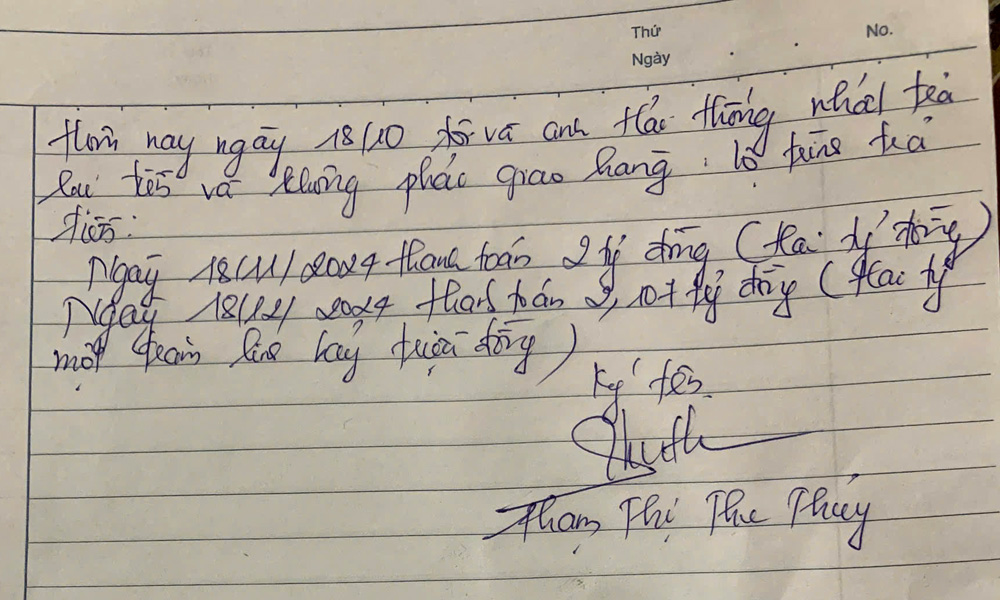 Thứ
No.
Ngày
Hôm nay ngày 18/10 tôi và anh Hải thống nhất trả
lại tiền và không phải giao hàng. lộ trình trả
tiền:
Ngày 18/11/2024 thanh toán 2 tỷ đồng (Hai tỷ đồng)
Ngày 18/12/2024 thanh toán 2,107 tỷ đồng (Hai tỷ
một trăm linh bảy triệu đồng)
Ký tên
Phạm Thị Thu Thủy